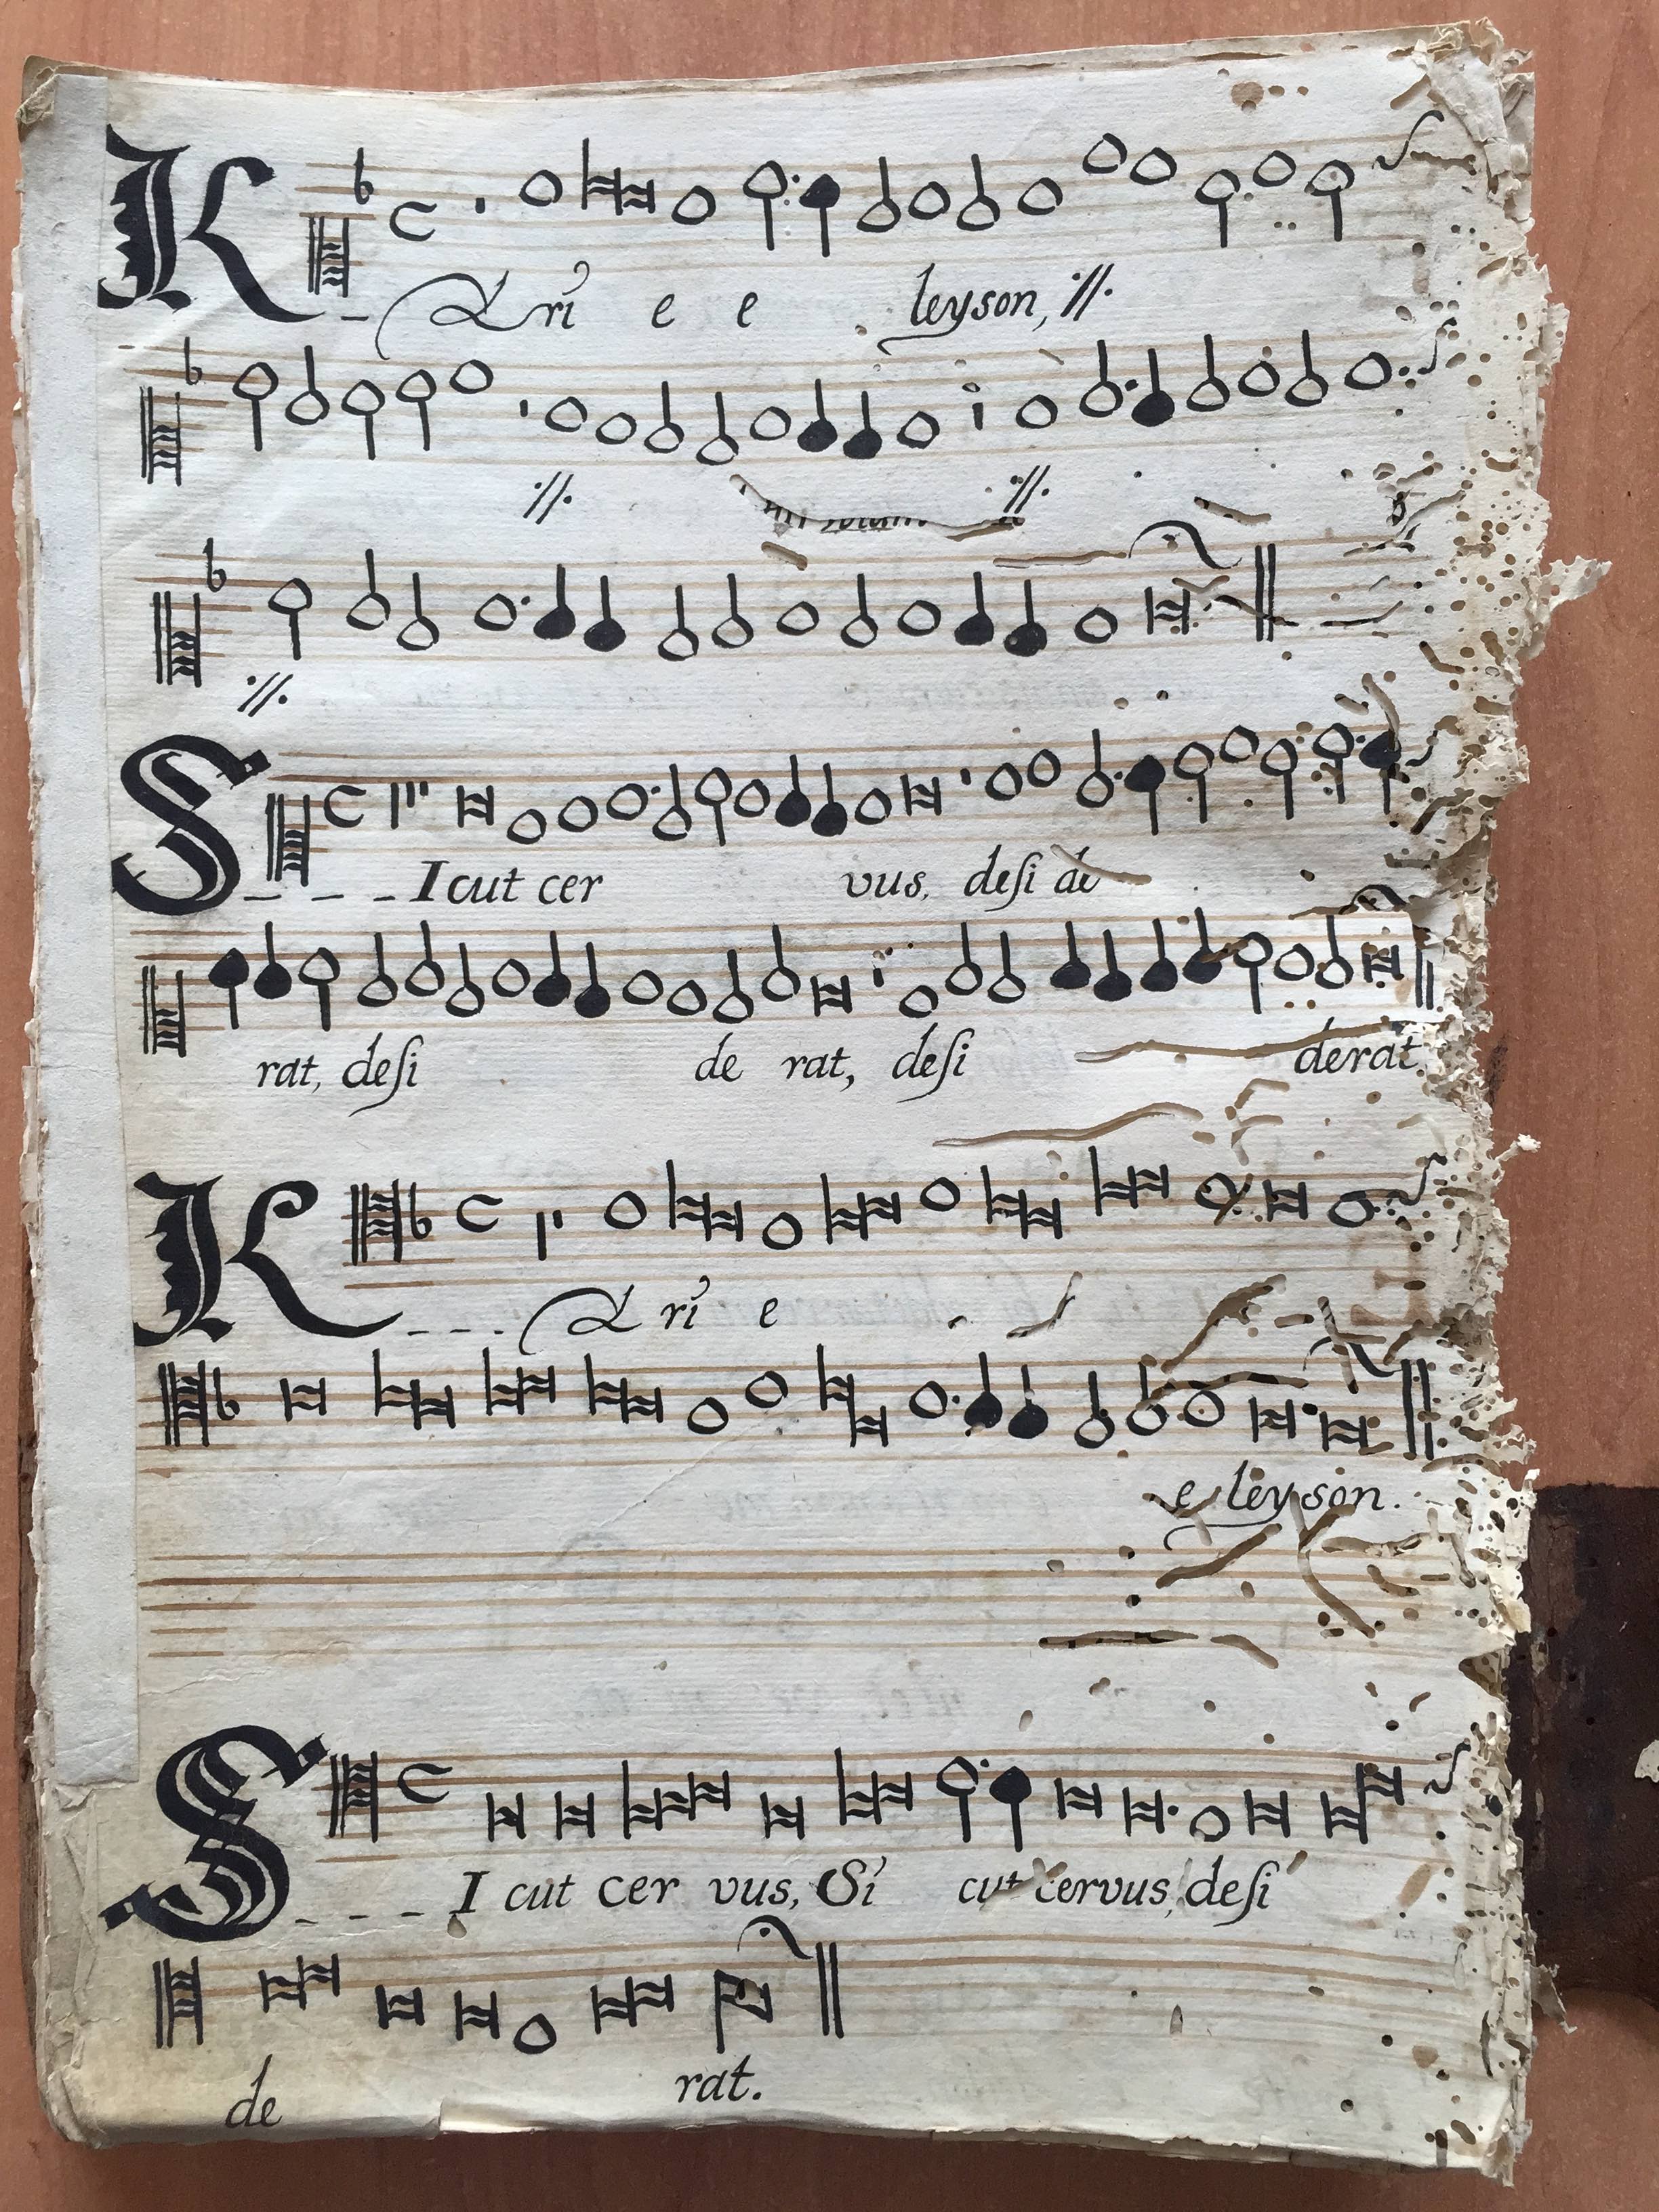 Kyri e e leyson, ://.
://. ://.
://.
SIcut cer vus, desi de
rat, desi de rat, desi derat
Kyri e
e leyson.
SI cut cer vus, Si cut cervus, desi
de rat.